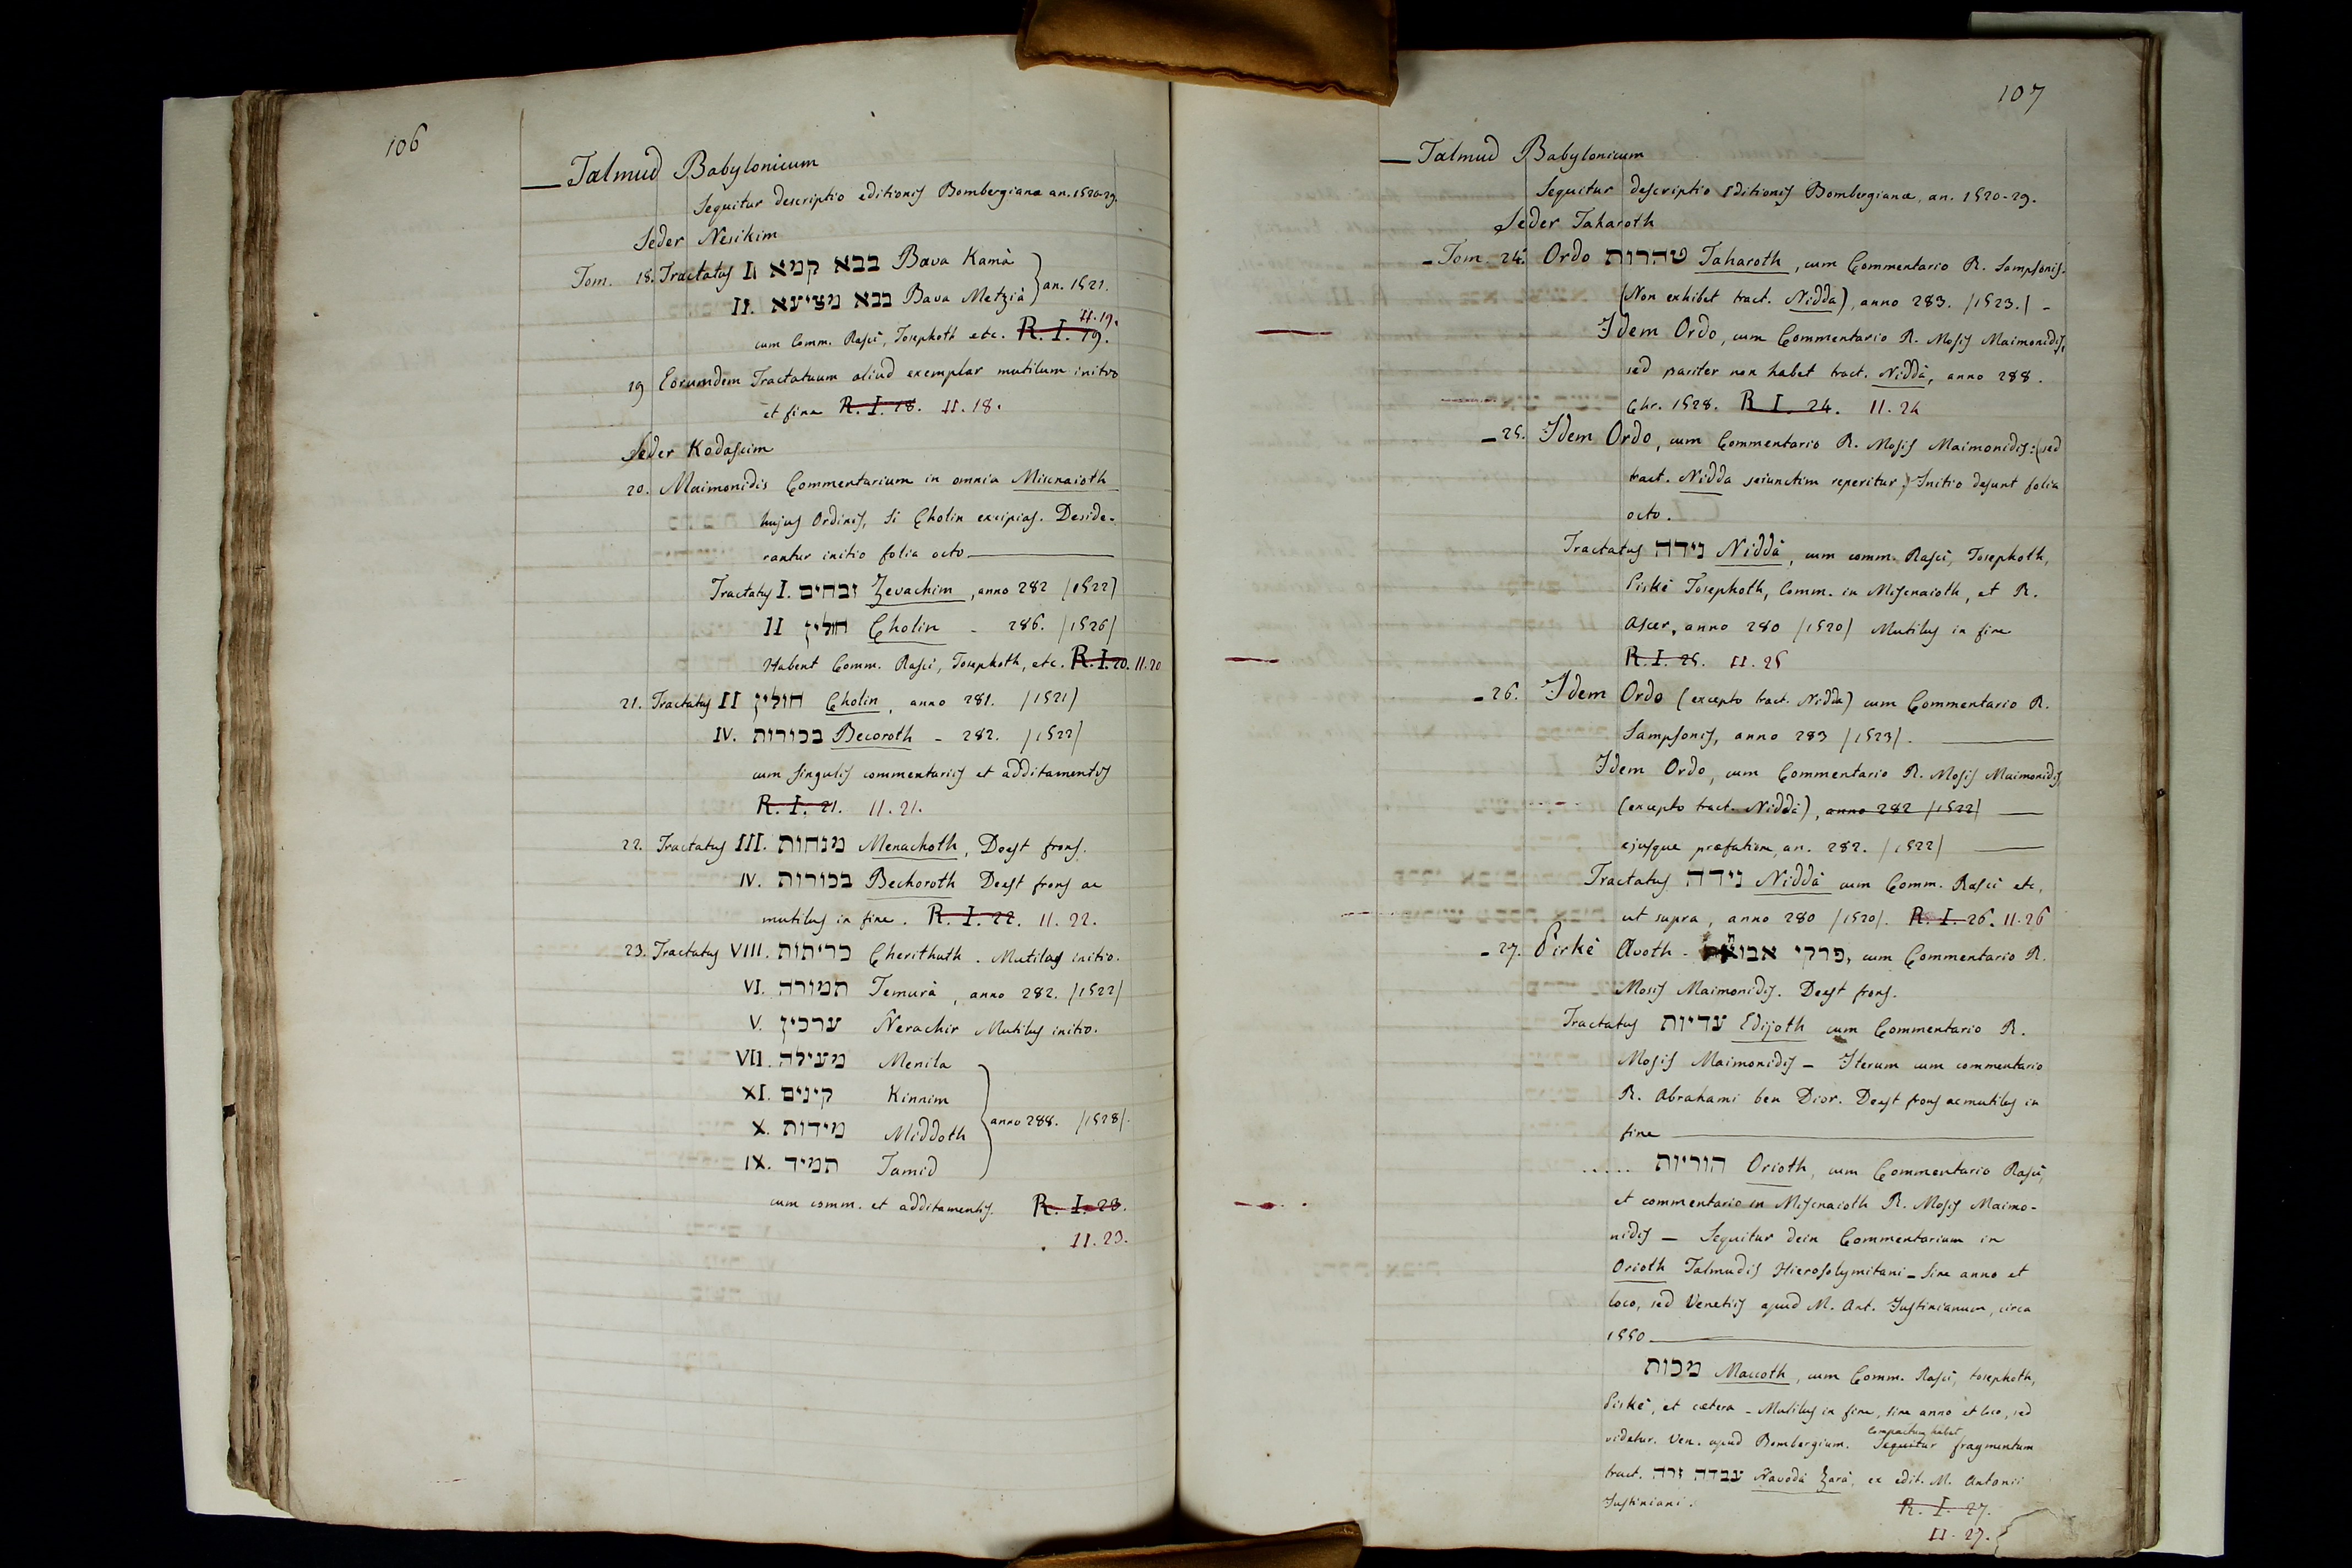 106
Talmud Babylonicum
Sequitur descriptio editionis Bombergianæ an. 1520-29.
Seder Nesikim
Tom. 18. Tractatus I. בבא קמא Bava Kamà
II. בבא מציעא Bava Metzià } an. 1521.
cum Comm. Rasci, Tosephoth etc. R. I. 19. II. 19.
19 Eorumdem Tractatuum aliud exemplar mutilum initio
et fine R. I. 18. II. 18.
Seder Kodascim
20. Maimonidis Commentarium in omnia Miscnaioth
hujus Ordinis, si Cholin excipias. Deside-
rantur initio folia octo
Tractatus I. זבחים Zevachim, anno 282 /1522/
II חולין Cholin - 286. /1526/
Habent Comm. Rasci, Tosephoth, etc. R. I. 20. II. 20
21. Tractatus II חולין Cholin, anno 281. /1521/
IV. בכורות Becoroth - 282. /1522/
cum singulis commentariis et additamentis
R. I. 21. II. 21.
22. Tractatus III. מנחות Menachoth, Deest frons.
IV. בכורות Bechoroth Deest frons ac
mutilus in fine. R. I. 22. II. 22.
23. Tractatus VIII. כריתות Cherithuth. Mutilus initio.
VI. תמורה Temurà, anno 282. /1522/
V. ערכין Nerachir Mutilus initio.
VII. מעילה Menila
XI. קינים Kinnim
X. מידות Middoth } anno 288. /1528/.
IX. תמיד Tamid
cum comm. et additamentis. R. I. 23.
II. 23.
107
Talmud Babylonicum
Sequitur descriptio Editionis Bombergianæ, an. 1520-29.
Seder Taharoth
Tom. 24. Ordo טהרות Taharoth, cum Commentario R. Sampsonis.
(Non exhibet tract. Nidda), anno 283. /1523./ -
Idem Ordo, cum Commentario R. Mosis Maimonidis,
sed pariter non habet tract. Niddà, anno 288.
Chr. 1528. R I. 24. II. 24
25. Idem Ordo, cum Commentario R. Mosis Maimonidis: (sed
tract. Nidda seiunctim reperitur) Initio desunt folia
octo.
Tractatus נידה Niddà, cum comm. Rasci, Tosephoth,
Piskè Tosephoth, Comm. in Miscnaioth, et R.
Ascer, anno 280 /1520/ Mutilus in fine
R. I. 25. II. 25
26. Idem Ordo (excepto tract. Nidda) cum Commentario R.
Sampsonis, anno 283 /1523/.
Idem Ordo, cum Commentario R. Mosis Maimonidis,
(excepto tract. Niddà), anno 282 /1522/
ejusque præfatione, an. 282. /1522/
Tractatus נידה Niddà cum Comm. Rasci etc,
ut supra, anno 280 /1520/. R. I. 26. II. 26
27. Pirkè Avoth - פרקי אבות, cum Commentario R.
Mosis Maimonidis. Deest frons.
Tractatus עדיות Edijoth cum Commentario R.
Mosis Maimonidis - Iterum cum commentario
R. Abrahami ben Dior. Deest frons ac mutilus in
fine
..... הוריות Orioth, cum Commentario Rasci,
et commentario in Miscnaioth R. Mosis Maimo-
nidis - Sequitur dein Commentarium in
Orioth Talmudis Hierosolymitani - sine anno et
loco, sed Venetiis apud M. Ant. Justinianum, circa
1550
מכות Maccoth, cum Comm. Rasci, tosephoth,
Piskè, et cætera - Mutilus in fine, sine anno et loco, sed
videtur. Ven. apud Bombergium. Compactum habet Sequitur fragmentum
tract. עבדה זרה Navodà Zarà, ex edit. M. Antonii
Justiniani. R. I. 27.
II. 27.